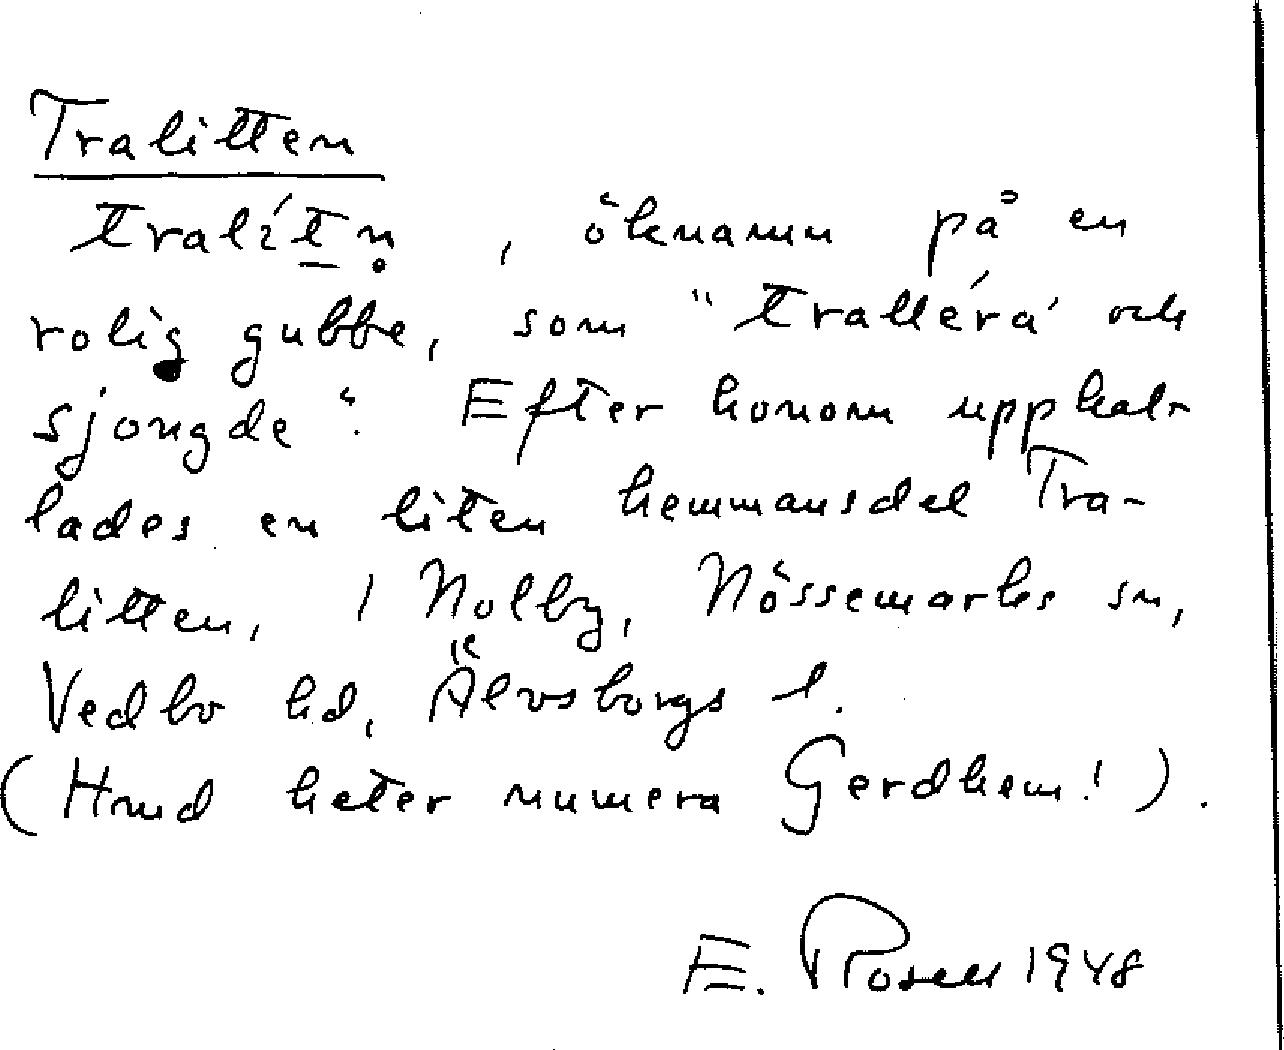 Tralitten
tralítn̥, öknamn på en
rolig gubbe, som "tralléra' och
sjongde". Efter honom uppkal-
lades en liten hemmansdel Tra-
litten, i Nolby, Nössemarks sn,
Vedbo hd, Älvsborgs l.
(Hmd heter numera Gerdhem!).
E. Rosell 1948